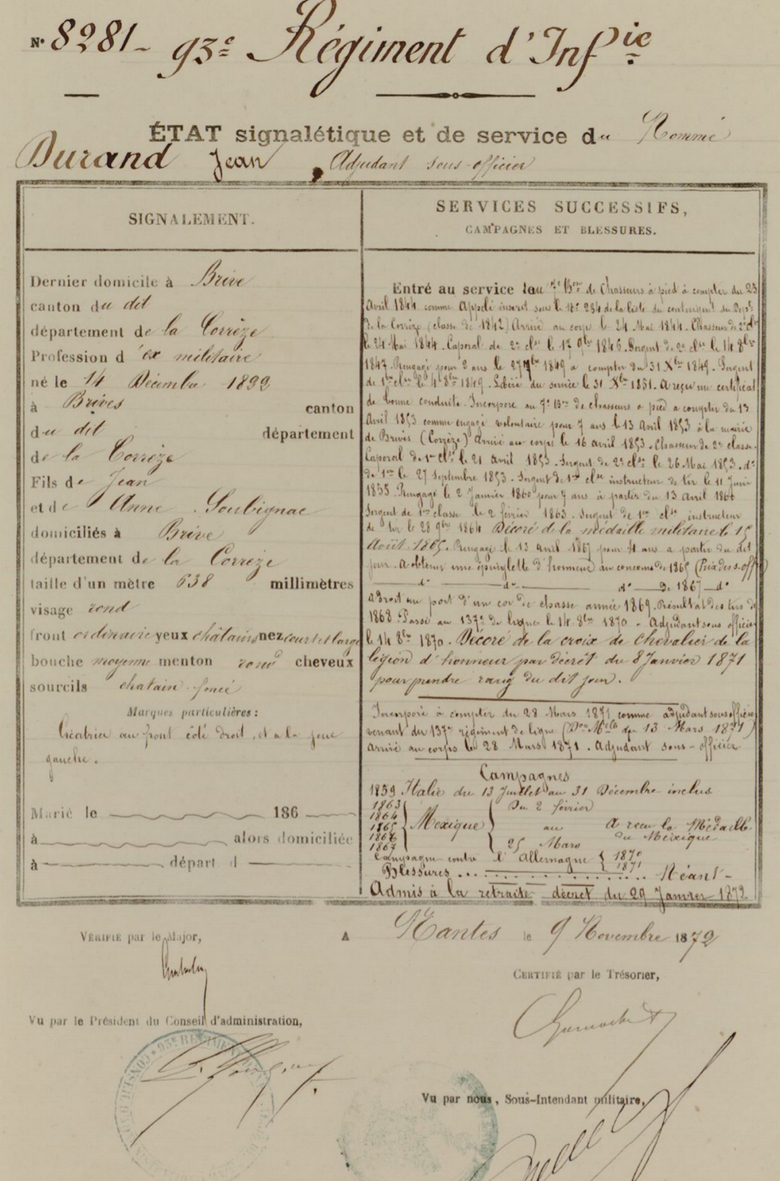 N° 8281 - 93e Régiment d'Infie
ÉTAT signalétique et de service du Nommé
Durand Jean, Adjudant sous-officier
SIGNALEMENT.
Dernier domicile à Brive
canton du dit
département de la Corrèze
Profession d'ex militaire
né le 14 Décembre 1822
à Brives canton
du dit département
de la Corrèze
Fils de Jean
et de Anne Soubignac
domiciliés à Brive
département de la Corrèze
taille d'un mètre 638 millimètres
visage rond
front ordinaire yeux châtains nez court et large
bouche moyenne menton rond cheveux
sourcils châtain foncé
Marques particulières :
Cicatrice au front côté droit et à la joue
gauche.
Marié le 186
à alors domiciliée
à départ d
SERVICES SUCCESSIFS,
CAMPAGNES ET BLESSURES.
Entré au service au 7e Bon de Chasseurs à pied à compter du 23
Avril 1844 comme Appelé inscrit sous le N° 254 de la liste du contingent du Dépt
de la Corrèze (classe de 1842) Arrivé au corps le 24 Mai 1844. Chasseur de 2e cl
le 24 Mai 1844. Caporal de 2e cle le 1er 9bre 1846. Sergent de 2e cle le 14 8bre
1847. Rengagé pour 2 ans le 27 7bre 1849 à compter du 31 Xbre 1849. Sergent
de 1re cle le 4 8bre 1849. Libéré du service le 31 Xbre 1851. A reçu un certificat
de bonne conduite. Incorporé au 7e Bon de chasseurs à pied à compter du 13
Avril 1853 comme engagé volontaire pour 7 ans le 13 Avril 1853 à la mairie
de Brives (Corrèze) Arrivé au corps le 16 avril 1853. Chasseur de 2e classe
Caporal de 1re cle le 21 avril 1853. Sergent de 2e cle le 26 Mai 1853. do
de 1re le 27 Septembre 1853. Sergent de 1re cle instructeur de tir le 11 Juin
1855. Rengagé le 2 Janvier 1860 pour 7 ans à partir du 13 Avril 1860
Sergent de 1re classe le 2 février 1863. Sergent de 1re cle instructeur
de tir le 28 9bre 1864 Décoré de la médaille militaire le 15
Août 1865. Rengagé le 13 Avril 1867 pour 4 ans à partir du dit
jour. A obtenu une épinglette d'honneur au concours de 1865 (Prix des s. offrs)
do do do de 1867 do
a Droit au port d'un cor de chasse année 1869. Résultat des tirs de
1868. Passé au 137e de ligne le 14 8bre 1870. Adjudant sous officier
le 14 8bre 1870. Décoré de la croix de chevalier de la
légion d'honneur par décret du 8 Janvier 1871
pour prendre rang du dit jour.
Incorporé à compter du 28 Mars 1871 comme adjudant sous officier
venant du 137e régiment de ligne (Don Mlle du 13 Mars 1871)
arrivé au corps le 28 Mars 1871. Adjudant sous-officier
Campagnes
1859 Italie du 13 Juillet au 31 Décembre inclus
1863 Du 2 février
1864
1865 Mexique au A reçu la Médaille
1866 du Mexique
1867 25 Mars
Campagne contre l'Allemagne 1870
1871
Blessures .......... Néant -
Admis à la retraite décret du 29 Janvier 1872
A Nantes le 9 Novembre 1872
VÉRIFIÉ par le Major,
CERTIFIÉ par le Trésorier,
Vu par le Président du Conseil d'administration,
Vu par nous, Sous-Intendant militaire,